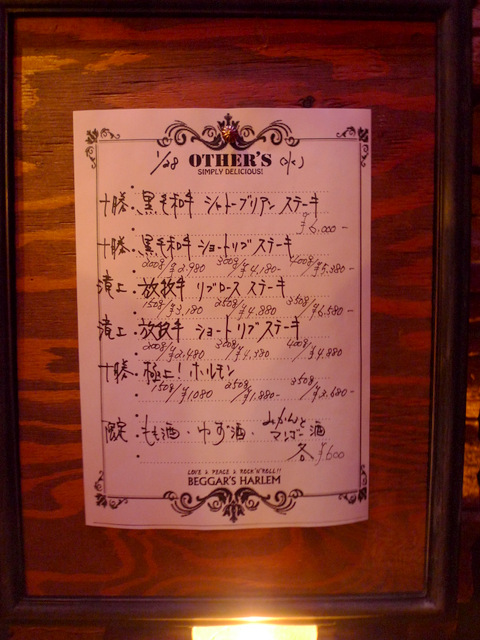 1/28 OTHER'S (水)
SIMPLY DELICIOUS!
十勝・黒毛和牛 シャトーブリアン ステーキ
¥6,000-
十勝・黒毛和牛 ショートリブ ステーキ
200g/¥2,980 300g/¥4,180- 400g/¥5,380-
滝上・放牧牛 リブロース ステーキ
150g/¥3,180 250g/¥4,880 350g/¥6,580-
滝上・放牧牛 ショートリブ ステーキ
200g/¥2,480 300g/ 400g/¥4,880
十勝・極上!ホルモン
150g/¥1,080 250g/¥1,880- 350g/¥2,680-
限定・もも酒・ゆず酒・みかんと
マンゴー酒
各¥600
LOVE & PEACE & ROCK'N'ROLL!!
BEGGAR'S HARLEM